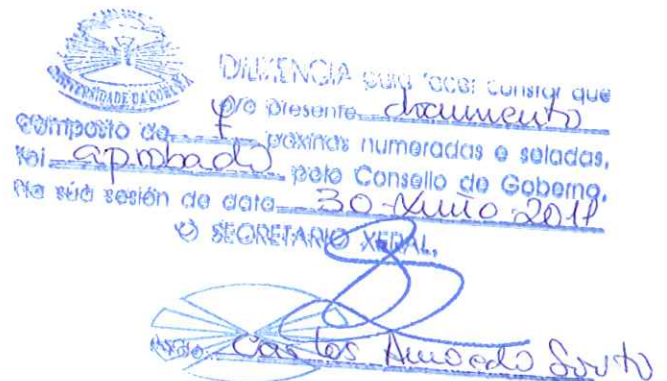 UNIVERSIDADE DA CORUÑA
DILIXENCIA para facer constar que
o/a presente documento
composto de 7 páxinas numeradas e seladas,
foi aprobado polo Consello de Goberno,
na súa sesión de data 30-xuño-2011
O SECRETARIO XERAL,
Asdo. Carlos Amoedo Souto